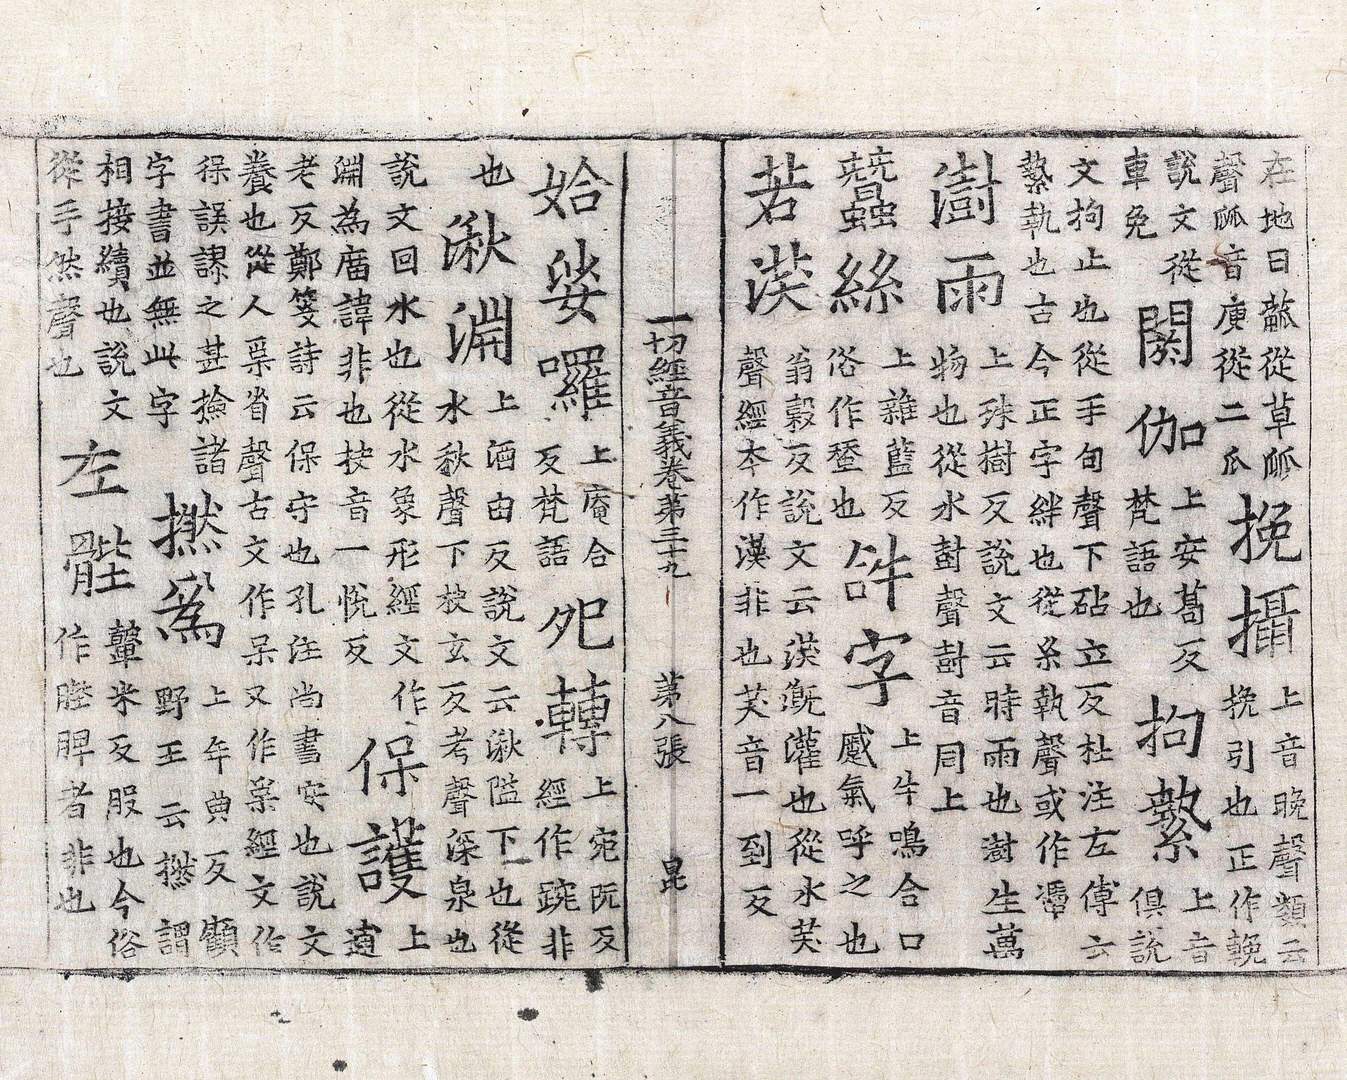 在地曰蓏從草𤓰
聲𤓰音庾從二瓜
挽攝
上音晚聲類云
挽引也正作輓
說文從
車免
閼伽
上安葛反
梵語也
拘縶
上音
俱說
文拘止也從手句聲下砧立反杜注左傳云
縶執也古今正字絆也從糸執聲或作馽
澍雨
上殊樹反說文云時雨也澍生萬
物也從水尌聲尌音同上
蠶絲
上雜藍反
俗作蝅也
𤙖字
上牛鳴合口
感氣呼之也
若沃
翁穀反說文云沃溉灌也從水芺
聲經本作漢非也芺音一到反
一切經音義卷第三十九 第八張 昆
姶娑囉
上庵合
反梵語
夗轉
上宛阮反
經作踠非
也
湫淵
上酒由反說文云湫隘下也從
水秋聲下抉玄反考聲深泉也
說文回水也從水象形經文作
渊為庿諱非也抉音一悅反
保護
上
逋
老反鄭箋詩云保守也孔注尚書安也說文
養也從人省聲古文作呆又作經文作
誤謬之甚撿諸
字書並無此字
撚為
上年典反顧
野王云撚謂
相接續也說文
從手然聲也
左髀
鼙米反股也今俗
作䏶脾者非也